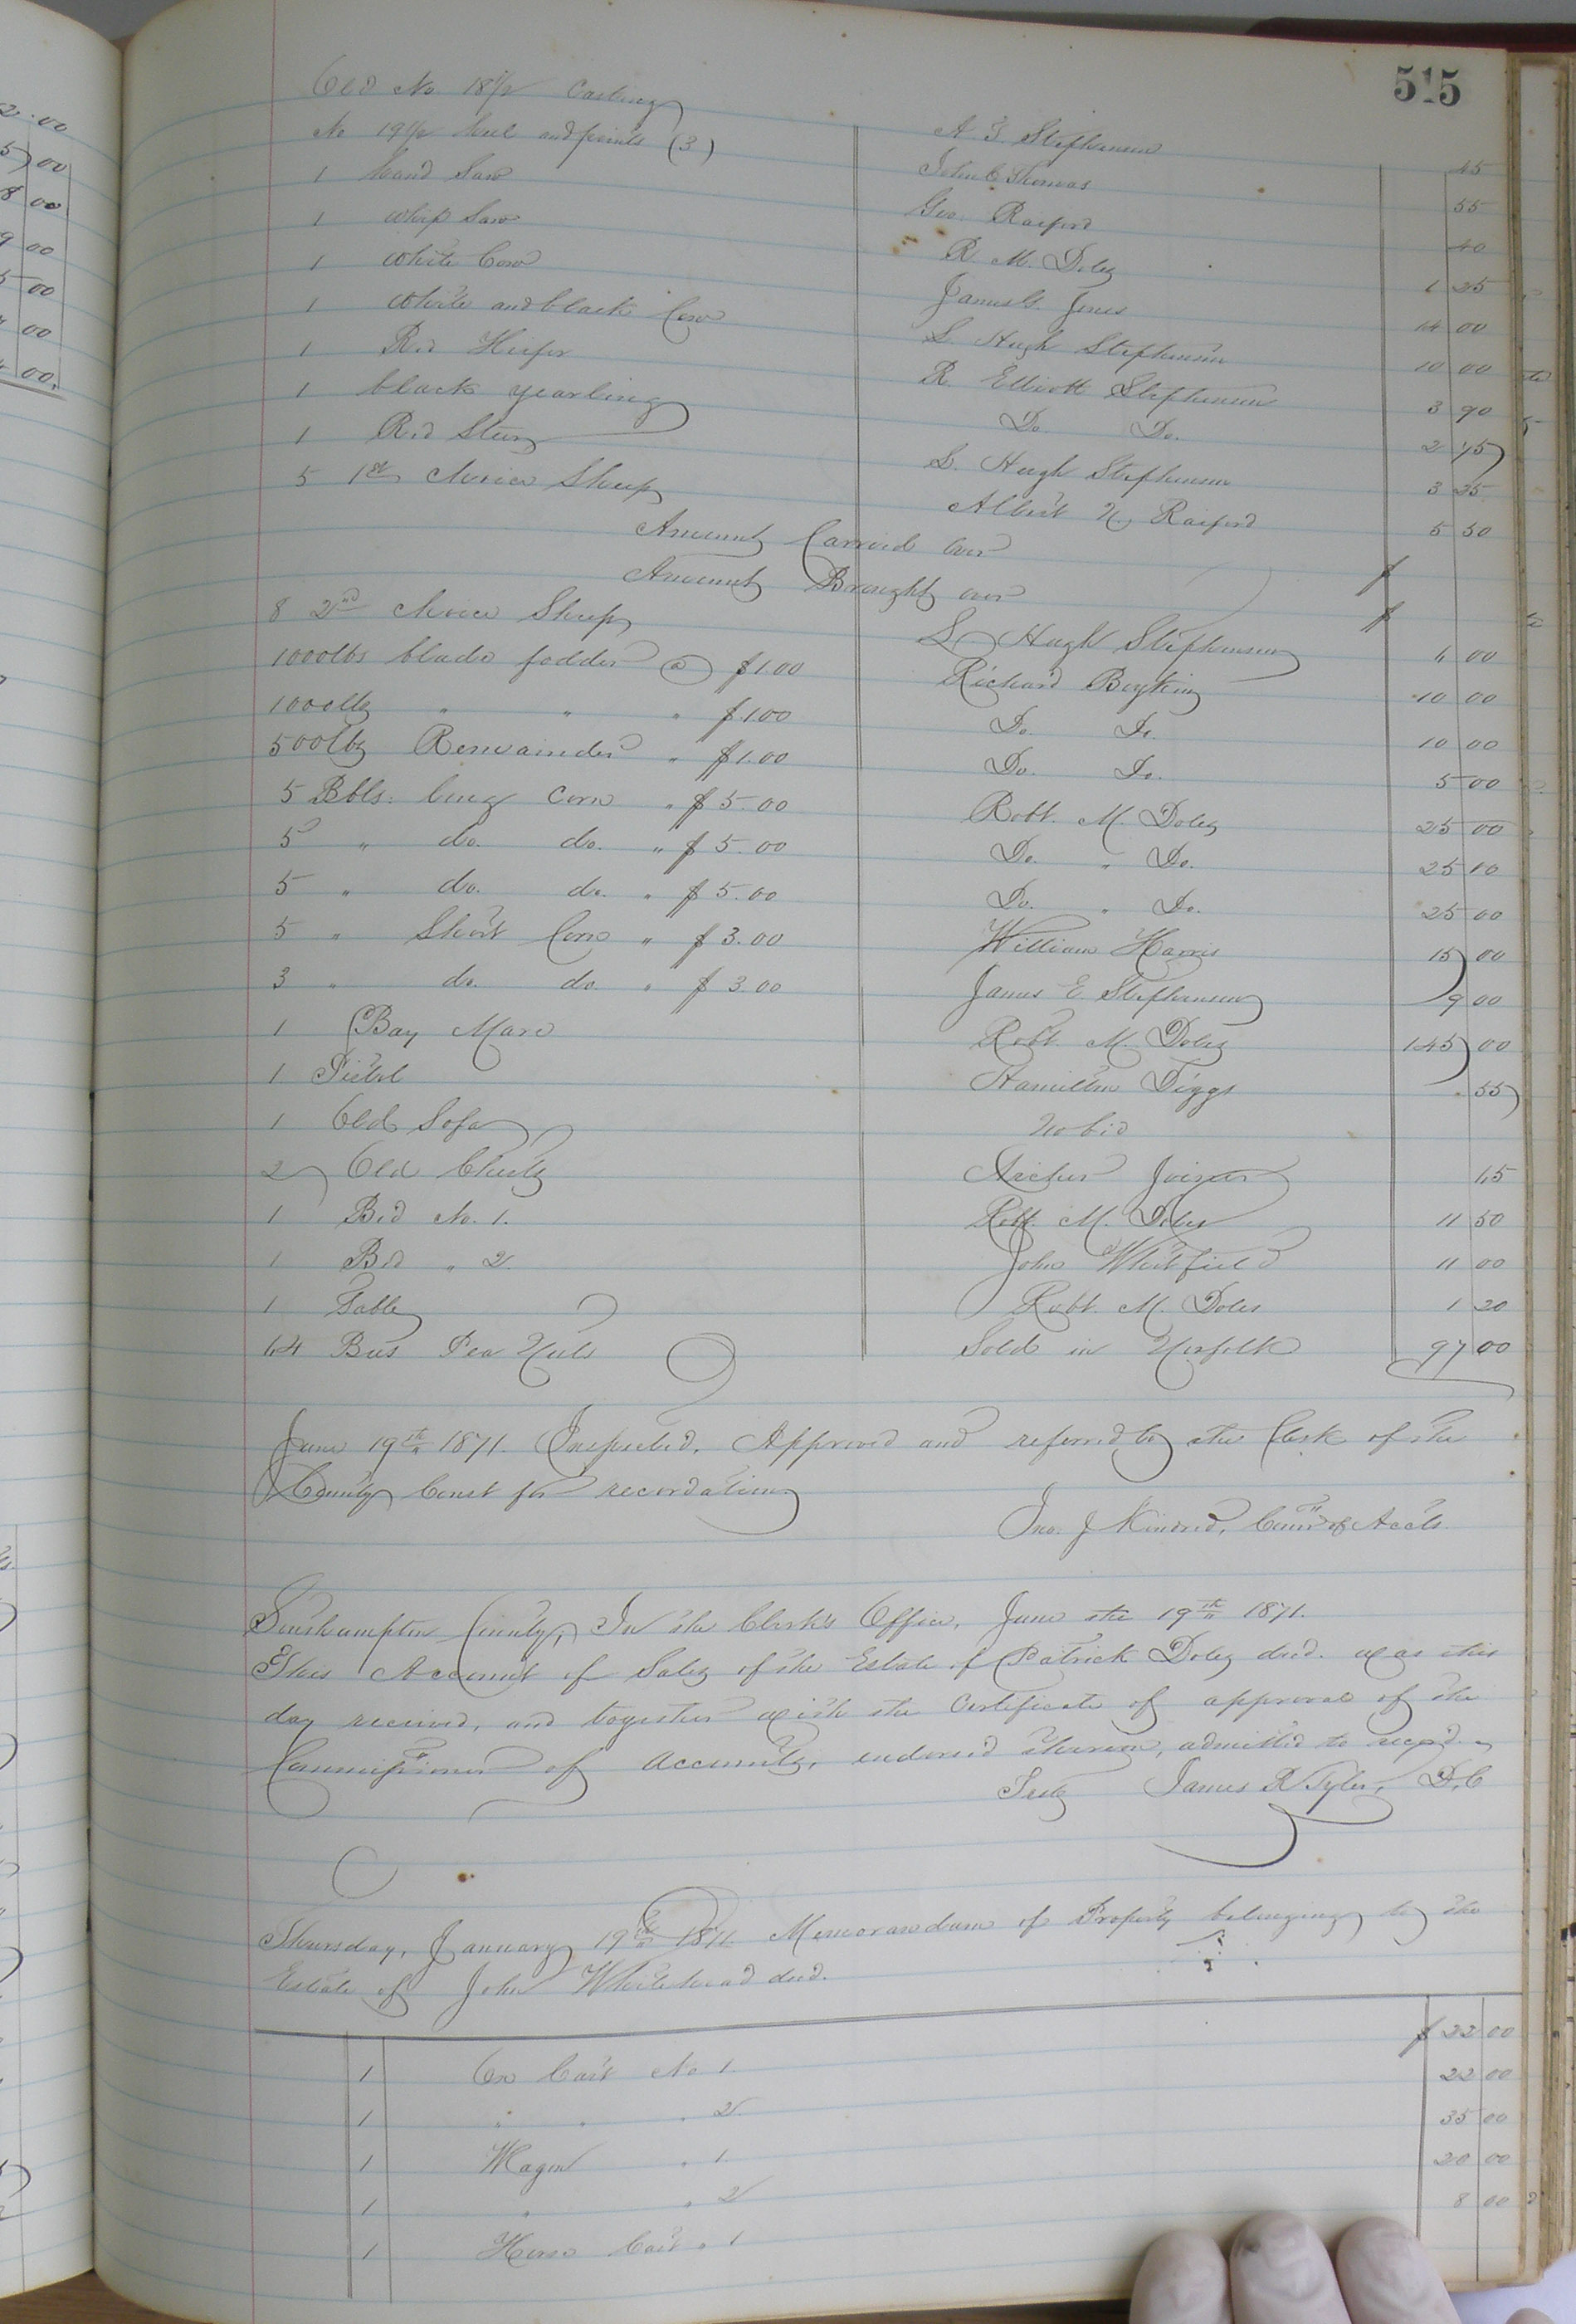 515
Old No 18 1/2 Castings A. J. Stephenson 45
No 19 1/2 heel and points (3) John C Thomas 55
1 hand Saw Geo. Raiford 40
1 whip Saw R. M. Doles 1 25
1 White Cow James G. Jones 14 00
1 White and black Cow L. Hugh Stephenson 10 00
1 Red Heifer R. Elliott Stephenson 3 90
1 black yearling Do. Do. 2 45
1 Red Steer L. Hugh Stephenson 3 25
5 1st Choice Sheep Albert N. Raiford 5 50
Amount Carried over $
Amount Brought over $
8 2nd Choice Sheep L Hugh Stephenson 4 00
1000lbs blade fodder @ $1.00 Richard Boykin 10 00
1000lbs " " " $1.00 Do. Do. 10 00
500lbs Remainder " $1.00 Do. Do. 5 00
5 Bbls. long Corn " $5.00 Robt. M. Doles 25 00
5 " do. do. " $5.00 Do. " Do. 25 10
5 " do. do. " $5.00 Do. " Do. 25 00
5 " Short Corn " $3.00 William Harris 15 00
3 " do. do. " $3.00 James E Stephenson 9 00
1 Bay Mare Robt. M. Doles 145 00
1 Pistol Hamilton Diggs 55
1 Old Sofa No bid
2 Old Chests Archer Joiner 45
1 Bed No. 1. Robt. M. Doles 11 50
1 Bed " 2. John Whitfield 11 00
1 Table Robt. M. Doles 1 20
44 Bus Pea Nuts Sold in Norfolk 97 00
June 19th 1871. Inspected, Approved and referred to the Clerk of the
County Court for recordation
Jno. J Kindred, Comr of Accts.
Southampton County, In the Clerk's Office, June the 19th 1871.
This Account of Sales of the Estate of Patrick Doles decd. was this
day received, and together with the Certificate of approval of the
Commissioner of Accounts, endorsed thereon, admitted to record.
Teste James R Tyler, D.C
Thursday, January 19th 1871 Memorandum of Property belonging to the
Estate of John Whitehead decd.
1 Ox Cart No 1. $22 00
1 " " " 2. 22 00
1 Wagon " 1. 35 00
1 " " 2 20 00
1 Horse Cart " 1 8 00